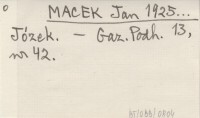 MACEK Jan 1925...
Józek. — Gaz. Podh. 13,
nr 42.